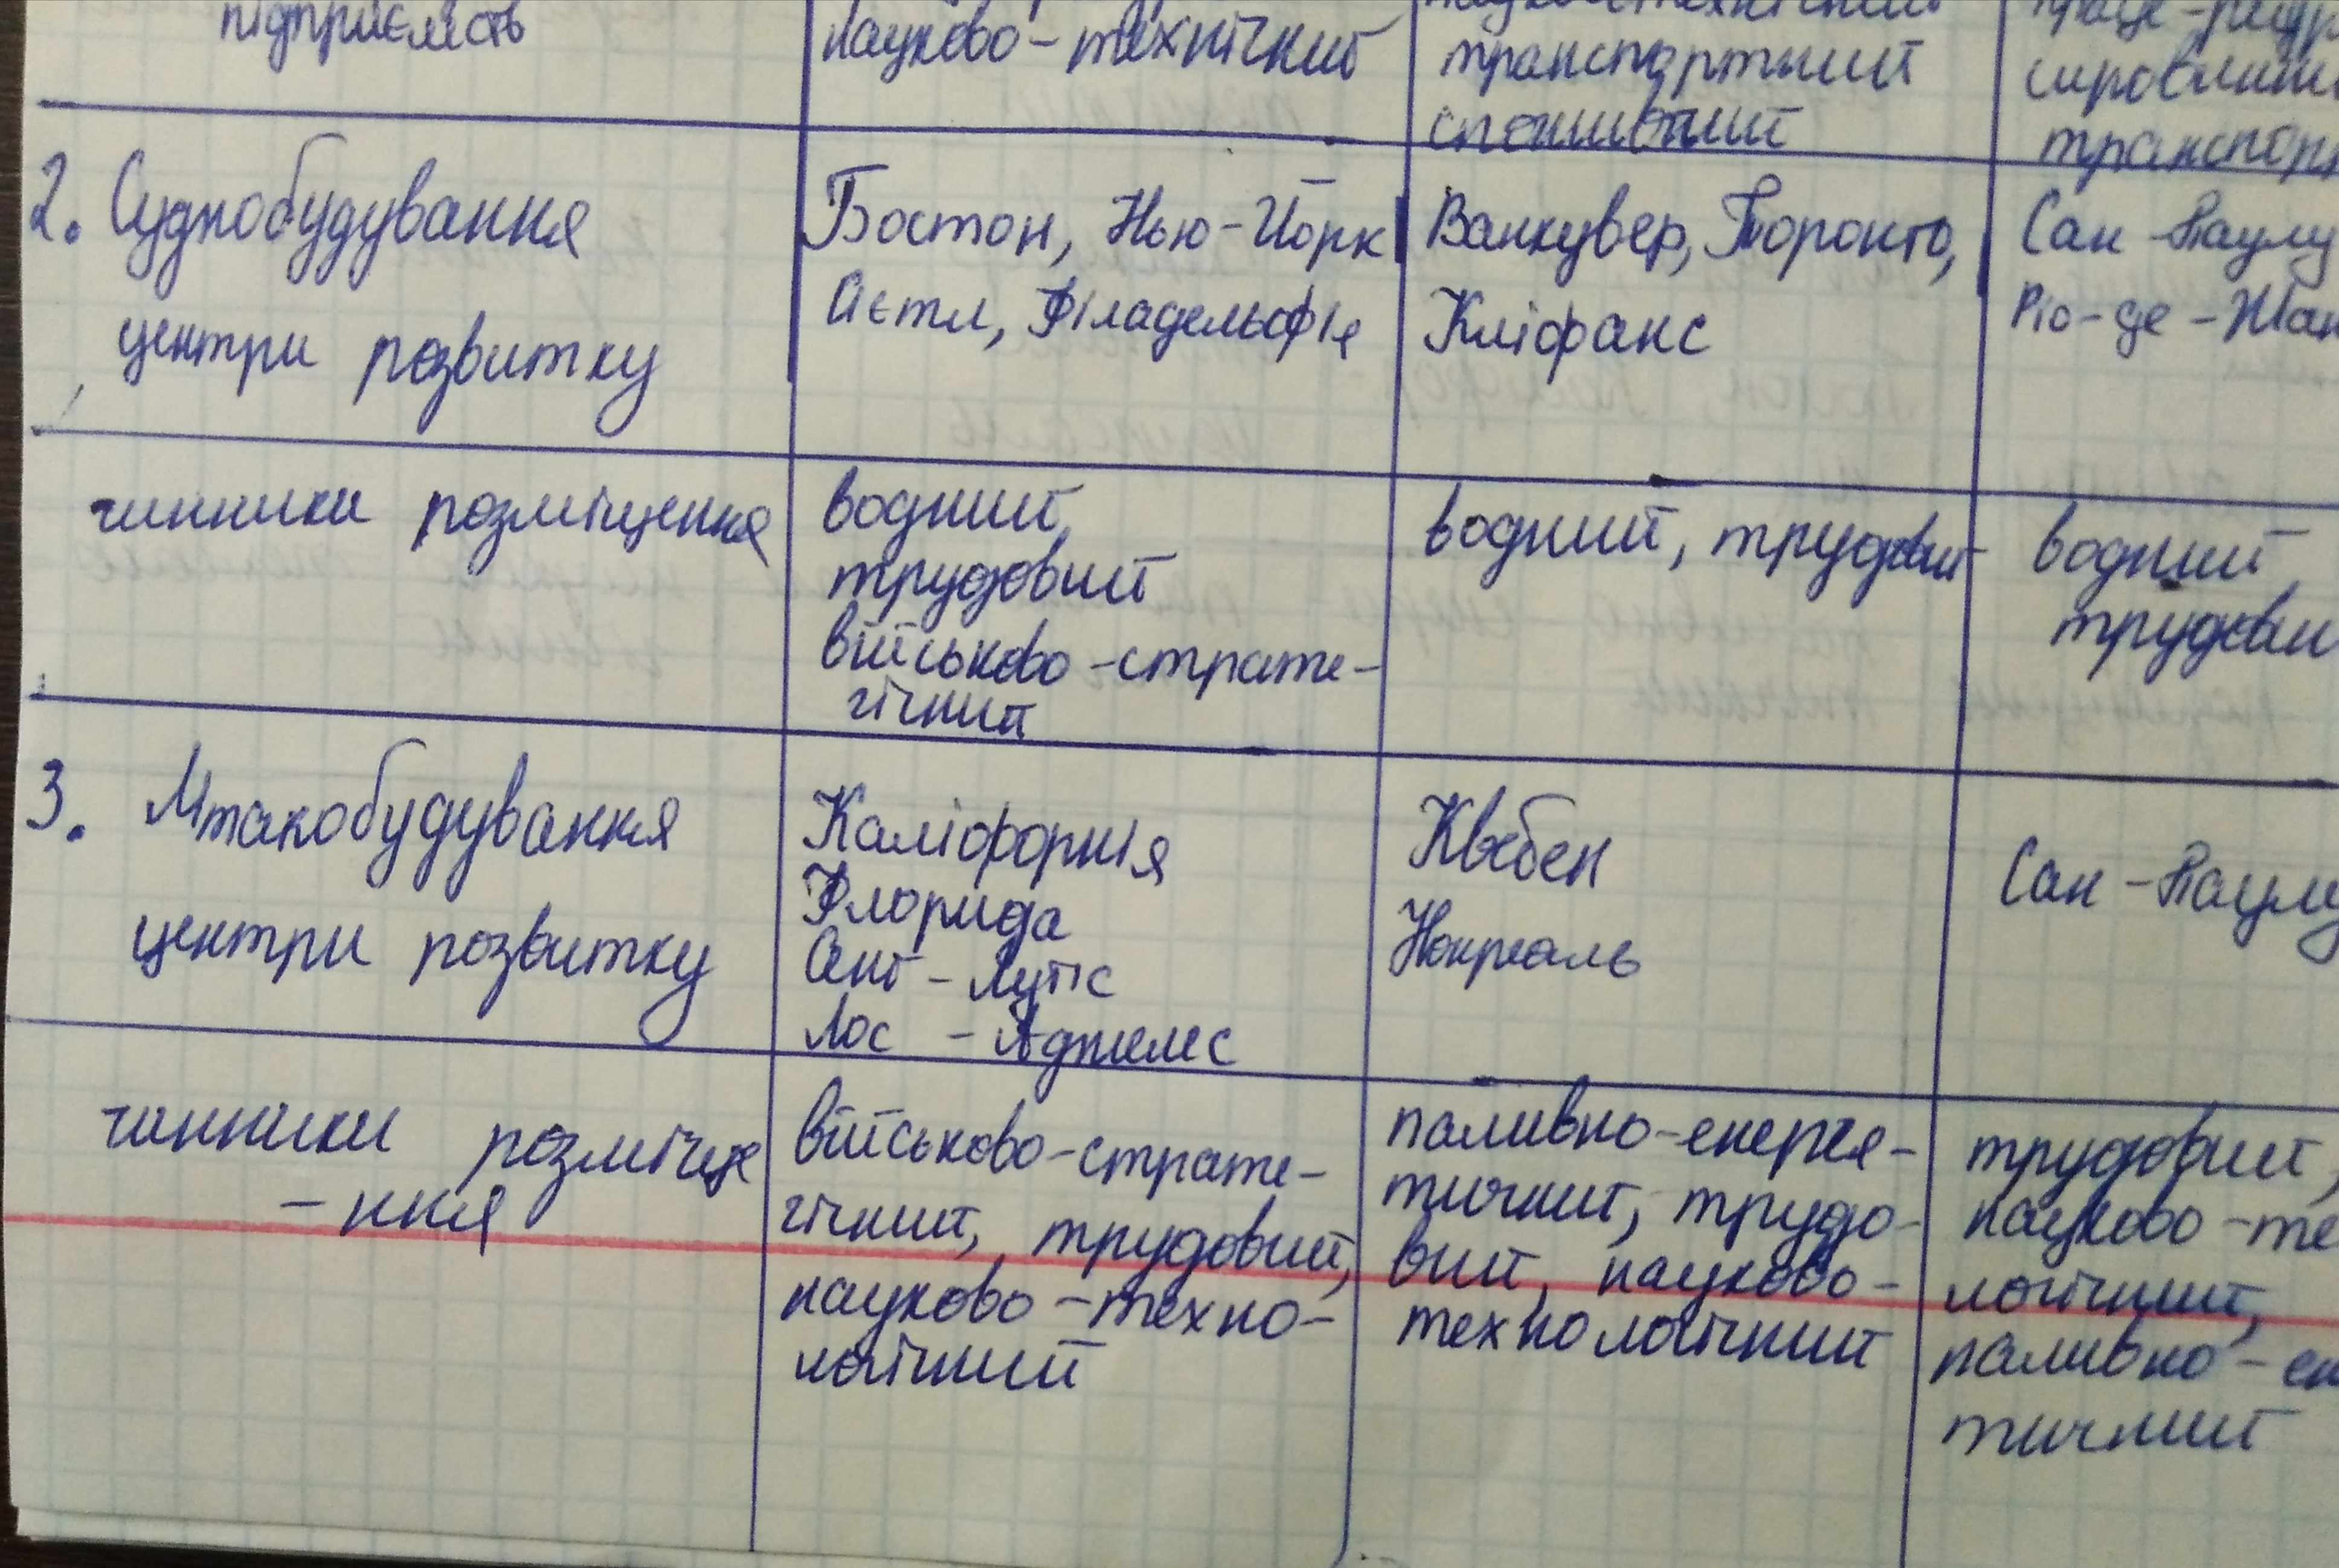 підприємств
науково-технічний
транспортний
споживчий
2. Суднобудування
центри розвитку
Бостон, Нью-Йорк
Сієтл, Філадельфія
Ванкувер, Торонто,
Кліфакс
Сан-Паулу
Ріо-де-Жан
чинники розміщення
водний,
трудовий
військово-страте-
гічний
водний, трудовий
водний,
трудови
3. Літакобудування
центри розвитку
Каліфорнія
Флорида
Сент-Луїс
Лос-Аджелес
Квебек
Сан-Паулу
чинники розміще
-ння
військово-страте-
гічний, трудовий,
науково-техно-
логічний
паливно-енерге-
тичний, трудо-
вий, науково-
технологічний
трудовий,
науково-те
логічний,
паливно-ен
тичний